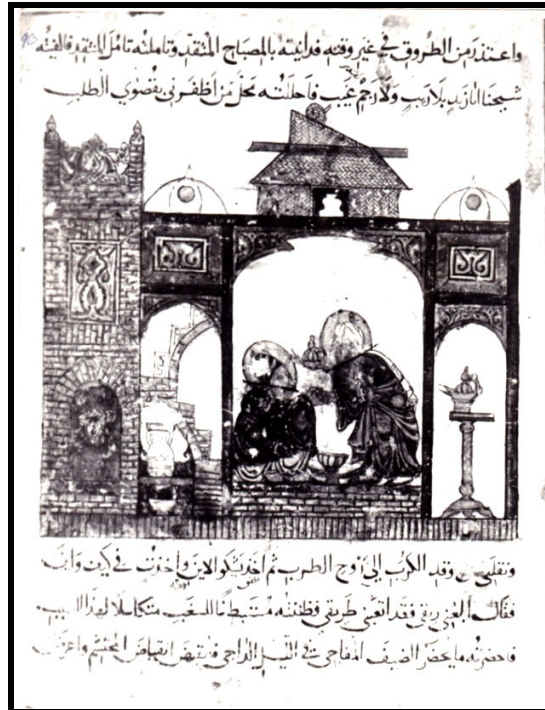 واعتذر من الطروق في غير وقته فدانيته بالمصباح المتقد وتاملته تامل المنتقد فالفيته
شيخنا ابا زيد بلا ريب ولا رجم غيب فاحللته محل من اظفرني بقصوي الطلب
ونقلني من وقد الكرب الي روح الطرب ثم اخذ يشكو الاين واخذت في كيف واين
فقال ابلعني ريقي فقد اتعبني طريقي فظننته مستبطنا للسغب متكاسلا لهذا السبب
فاحضرته ما يحضر الضيف المفاجي في الليل الداجي فانقبض انقباض المحتشم واعرض